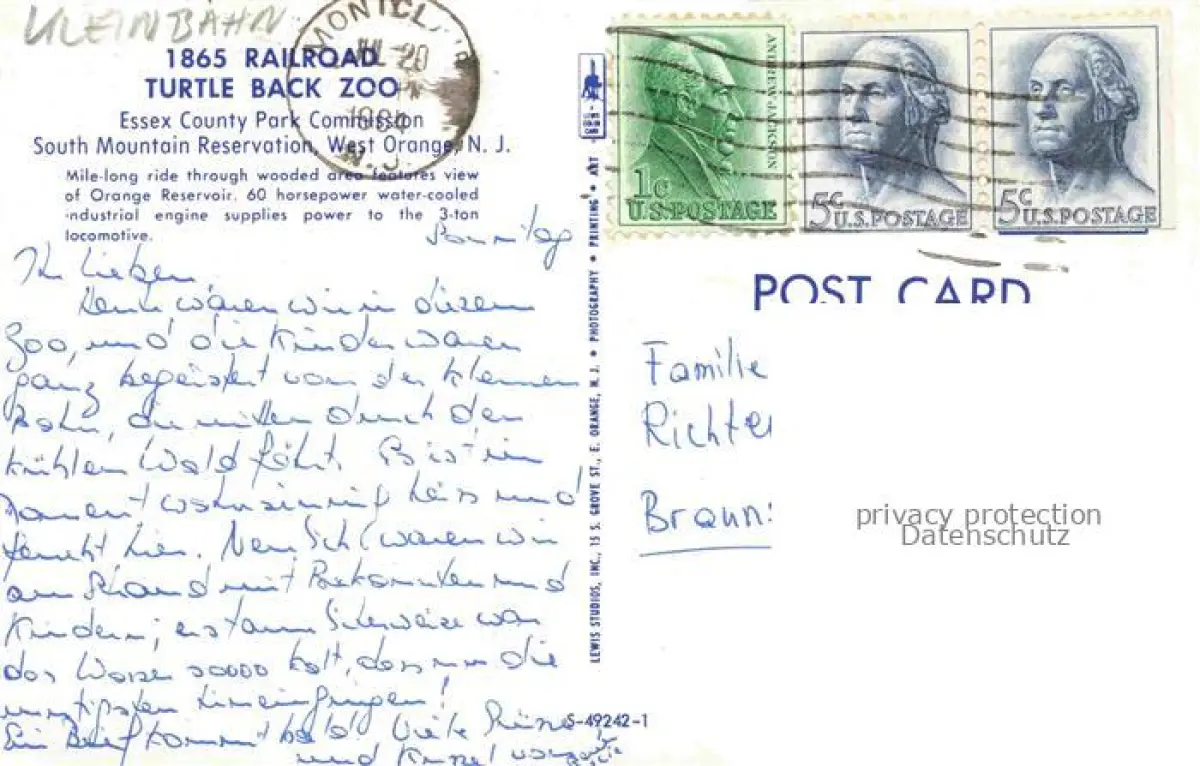 KLEINBAHN
1865 RAILROAD
TURTLE BACK ZOO
Essex County Park Commission
South Mountain Reservation, West Orange, N. J.
Mile-long ride through wooded area features view
of Orange Reservoir. 60 horsepower water-cooled
industrial engine supplies power to the 3-ton
locomotive.
MONTCLAIR
JUL 20
N.J.
1c
U.S.POSTAGE
ANDREW JACKSON
5c U.S.POSTAGE
5c U.S.POSTAGE
Sonntag
Ihr Lieben
Heute waren wir in diesem
Zoo, und die Kinder waren
ganz begeistert von der kleinen
Bahn, die mitten durch den
kühlen Wald fährt. Es ist im
Moment wahnsinnig heiss und
feucht hier. waren wir
am Strand mit und
Kindern; erstaunlicherweise war
das Wasser soooo kalt, dass nur die
mutigsten hineingingen!
Ein Brief kommt bald. Viele Grüsse
und
LEWIS STUDIOS, INC., 15 S. GROVE ST., E. ORANGE, N. J. • PHOTOGRAPHY • PRINTING • ART
S-49242-1
POST CARD
Familie
Richter
Braun
privacy protection
Datenschutz